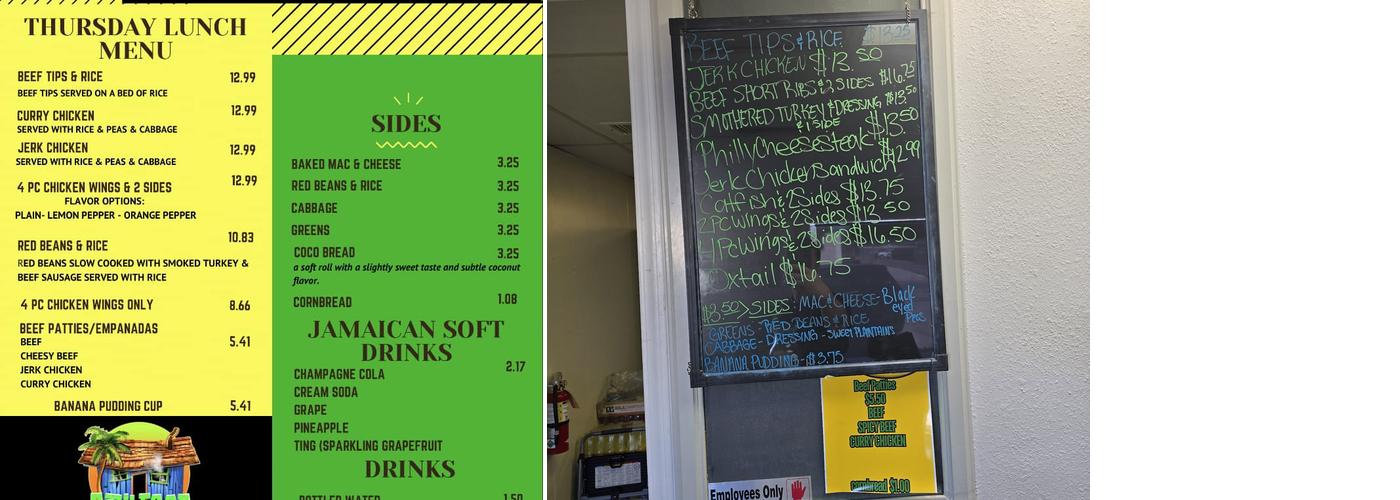 THURSDAY LUNCH
MENU
BEEF TIPS & RICE 12.99
BEEF TIPS SERVED ON A BED OF RICE
CURRY CHICKEN 12.99
SERVED WITH RICE & PEAS & CABBAGE
JERK CHICKEN 12.99
SERVED WITH RICE & PEAS & CABBAGE
4 PC CHICKEN WINGS & 2 SIDES 12.99
FLAVOR OPTIONS:
PLAIN- LEMON PEPPER - ORANGE PEPPER
RED BEANS & RICE 10.83
RED BEANS SLOW COOKED WITH SMOKED TURKEY &
BEEF SAUSAGE SERVED WITH RICE
4 PC CHICKEN WINGS ONLY 8.66
BEEF PATTIES/EMPANADAS
BEEF 5.41
CHEESY BEEF
JERK CHICKEN
CURRY CHICKEN
BANANA PUDDING CUP 5.41
SIDES
BAKED MAC & CHEESE 3.25
RED BEANS & RICE 3.25
CABBAGE 3.25
GREENS 3.25
COCO BREAD 3.25
a soft roll with a slightly sweet taste and subtle coconut
flavor.
CORNBREAD 1.08
JAMAICAN SOFT
DRINKS
CHAMPAGNE COLA 2.17
CREAM SODA
GRAPE
PINEAPPLE
TING (SPARKLING GRAPEFRUIT
DRINKS
BOTTLED WATER 1.50
BEEF TIPS & RICE $13.25
JERK CHICKEN $13.50
BEEF SHORT RIBS & 2 SIDES $16.75
SMOTHERED TURKEY & DRESSING $13.50
& 1 SIDE
Philly Cheesesteak $13.50
Jerk Chicken Sandwich $12.99
Catfish & 2 Sides $13.75
2 Pc Wings & 2 Sides $13.50
4 Pc Wings & 2 Sides $16.50
Oxtail $16.75
$3.50> SIDES: MAC & CHEESE- Black
eyed
Peas
GREENS - RED BEANS & RICE
CABBAGE - DRESSING - SWEET PLANTAINS
BANANA PUDDING - $3.75
Beef Patties
$5.50
BEEF
SPICY BEEF
CURRY CHICKEN
cornbread $1.00
Employees Only